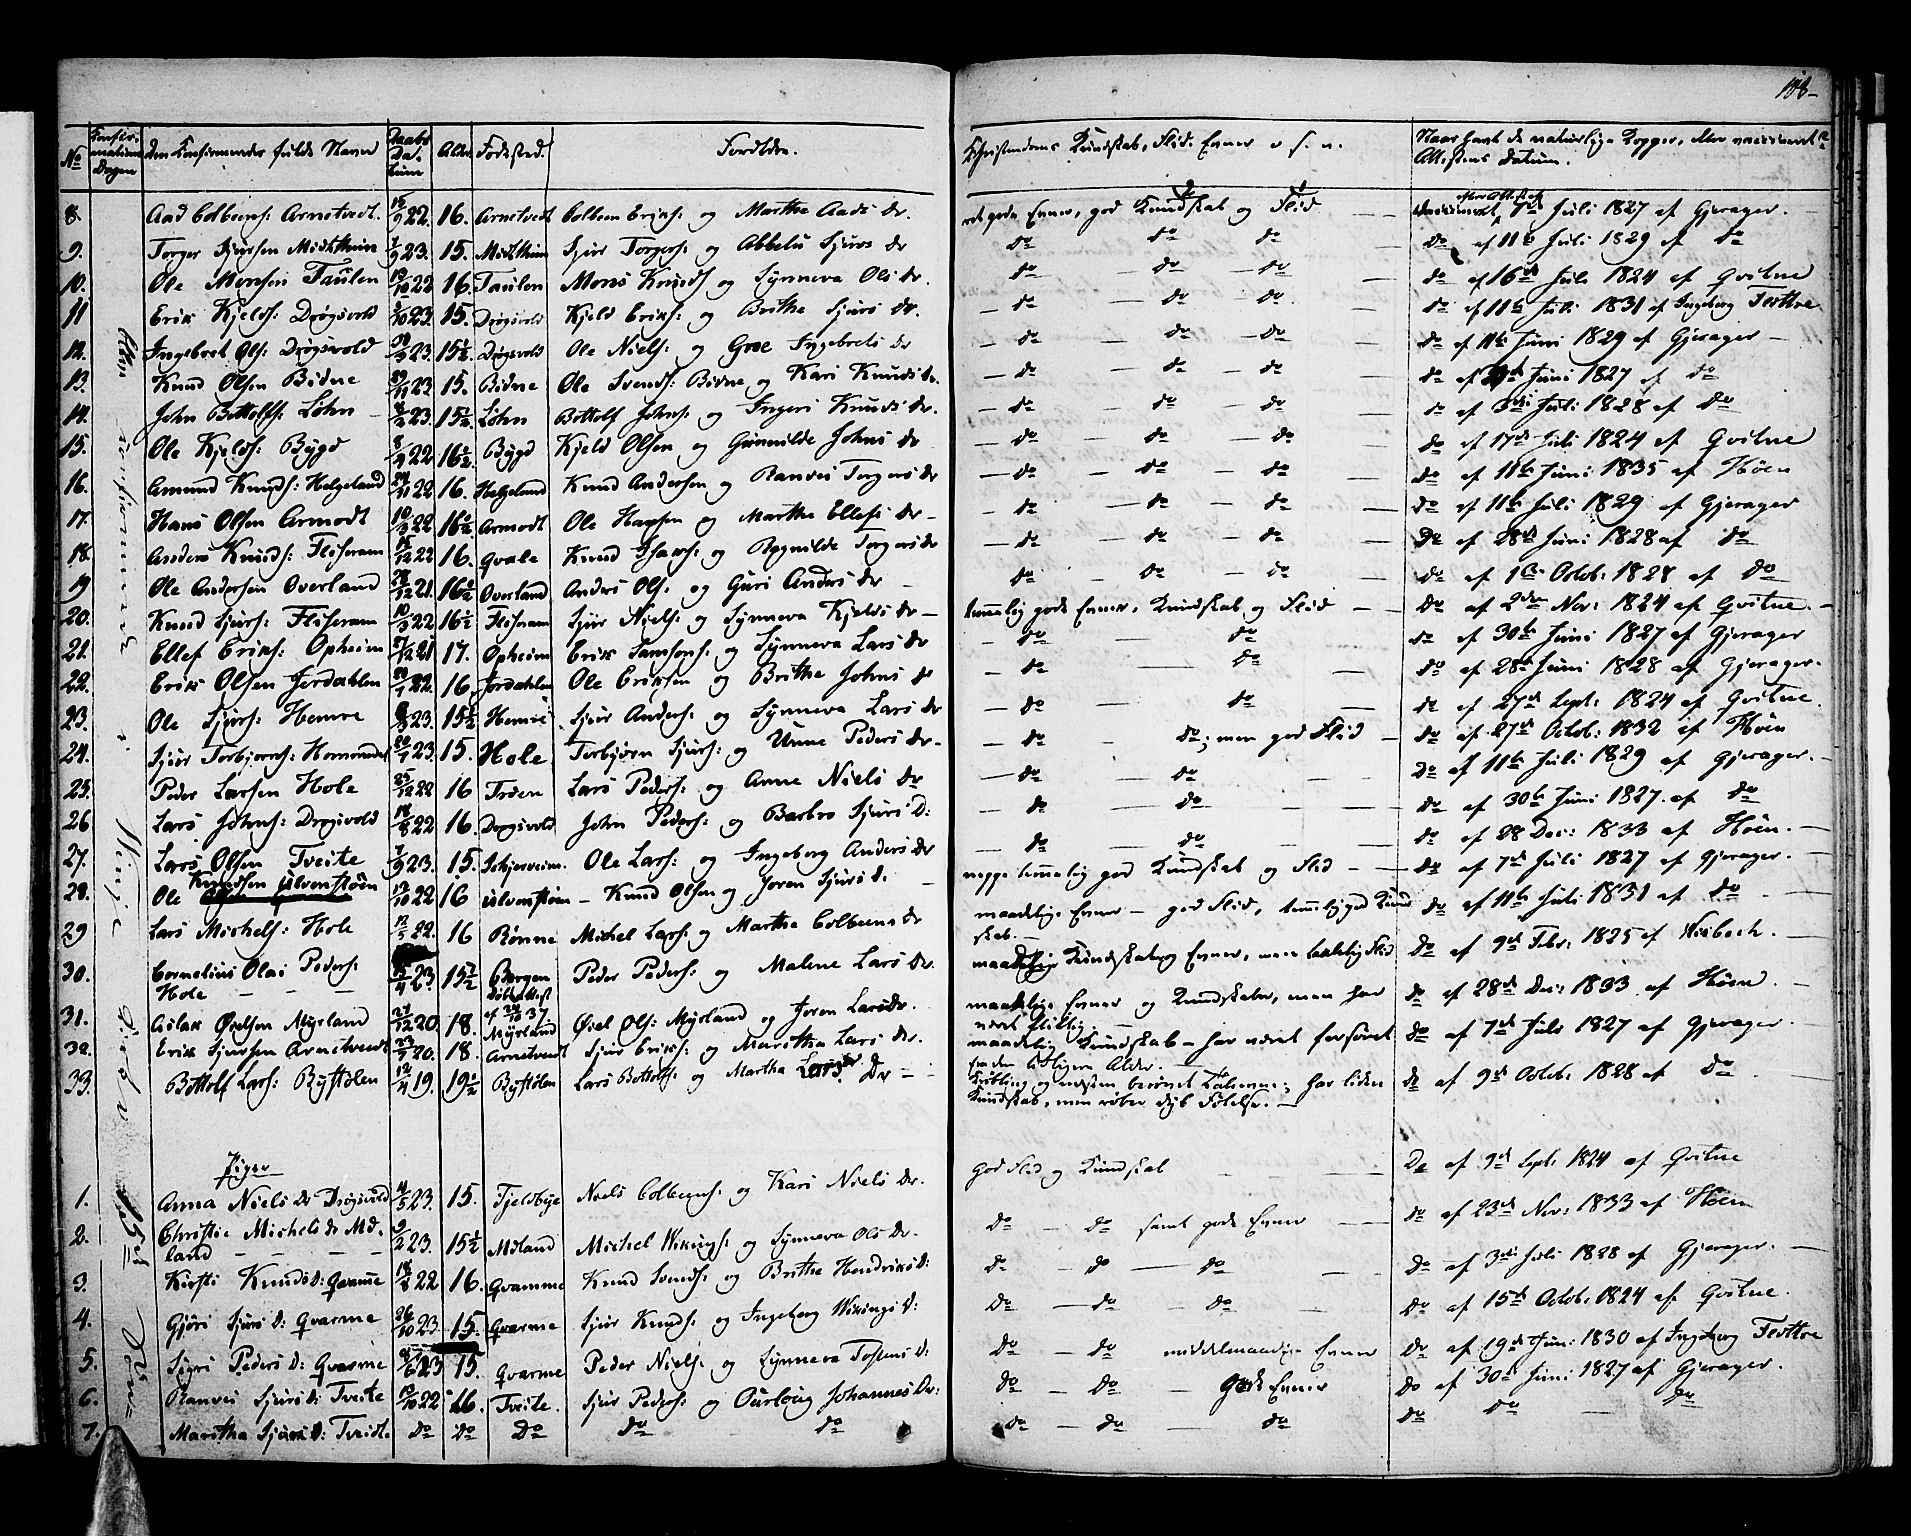 188-
No Confirmations Dagen Den Confirmeredes fulde Navn Daabs Datum Alder Fødested. Forældre. Christendoms Kundskab, Flid, Evner o. s. v. Naar havt de naturlige Kopper, eller vaccineret Attestens Datum.
Alle confirmerede i Vinje Kirke 15de
8. Aad Colbeens: Arnetvedt. 15/9 22. 16. Arnetvedt Colbeen Eriks: og Martha Aads Dr. ret gode Evner, god Kundskab og Flid — vaccineret efter Attest af 7de Juli 1827 af Gjerager.
9. Torger Sjursen Midthun 7/9 23. 15. Midthun Sjur Torgers: og Abbelu Sjurs Dr do — do — do — do af 11te Juli 1829 af do
10. Ole Monsen Taulen 13/10 22 16. Taulen Mons Knuds: og Synneva Ols Dr. do — do — do — do af 16de Juli 1824 af Qvitne
11 Erik Kjelds: Drøgsvold 5/10 23. 15. Drøgsvold Kjeld Eriks: og Brithe Sjurs Dr. — do — do — do. — do af 11te Juli 1831 af Ingeborg Flotthre
12. Ingebret Ols: Drøgsvold 23. 15½ Drøgsvold Ole Niels: og Groe Ingebrets Dr — do — do — do — do af 11te Juni 1829 af Gjerager —
13. Knud Olsen Bidne 23 15. Bidne Ole Svends: Bidne og Kari Knuds Dr. — do — do — do — do af Juni 1827 af do
14. John Bottolfs: Løhn 23. 15½ Løhn Bottolf Johns: og Ingeri Knuds Dr. — do — do — do — do af 3die Juli 1828 af do
15. Ole Kjelds: Bygd 8/4 22 16½ Bygd Kjeld Olsen og Gunnilde Johns Dr — do — do — do do af 17de Juli 1824 af Qvitne
16. Amund Knuds: Helgeland 22 16. Helgeland Knud Andersen og Ranvei Torgers Dr — do — do — do do af 11te Juni 1835 af Høen
17. Hans Olsen Armodt 10/3 22 16½ Armodt Ole Hansen og Marthe Ellefs Dr — — do — do — do do af 11te Juli 1829 af Gjerager
18. Anders Knuds: Fliseram 15/12 22 16. Qvale Knud Isaks: og Rognilde Torgers Dr — do — do — do do af 28de Juni 1828 af do
19 Ole Andersen Overland 28/12 21. 16½ Overland Anders Ols: og Guri Anders Dr — do — do — do — do af 1ste Octob: 1828 af do
20. Knud Sjurs: Fliseram 10/3 22 16½ Fliseram Sjur Niels: og Synneva Kjelds Dr — temmelig gode Evner, Kundskab og Flid — do af 2den Nov: 1824 af Qvitne. —
21. Ellef Eriks: Opheim 21 17. Opheim Erik Samsons: og Synneva Lars Dr — do — do — do af 30te Juni 1827 af Gjerager
22. Erik Olsen Jordahlen 22. 16. Jordahlen Ole Eriksen og Brithe Johns Dr — do — do — do af 28de Juni 1828 af Gjerager.
23. Ole Sjurs: Hemre 23. 15½ Hemre Sjur Anders: og Synneva Lars Dr — do — do — do af 27de Sept: 1824 af Qvitne
24. Sjur Torbjørns: 23. 15. Hole Torbjørn Sjurs: og Unne Peders Dr. — — do do; men god Flid — do af 27de Octob: 1832 af Høen
25. Peder Larsen Hole 22 16 Troen Lars Peders: og Anne Niels Dr — do — do — do af 11te Juli 1829 af Gjerager. —
26 Lars Johns: Drøgsvold 18/8 22 16. Drøgsvold John Peders: og Barbro Sjurs D: — do — do — do af 30te Juni 1827. af do
27. Lars Olsen Tveite 7/9 23. 15. Schjerveim. Ole Lars: og Ingeborg Anders Dr — do — do — do af 28 Dec: 1833 af Høen. —
28. Ole Knudsen Ulvenstøen 13/10 22 16 Ulvenstøen — Knud Olsen og Joren Sjurs D: neppe temmelig god Kundskab og Flid — do af 7de Juli 1827 af Gjerager.
29 Lars Michels: Hole 12/5 22. 16 Rønne Michel Lars: og Martha Colbeens Dr maadelige Evner — god Flid, temmelig god Kundskab. — do af 11te Juli 1831 af do
30. Cornelius Olai Peders: Hole — — 23. 15½ Bergen Peder Peders: og Malene Lars Dr. maadelige Kundskab og Evner, men Flid do af 9de Febr: 1825 af Wisbech. —
Døbeattest af 24/10 37
31. Aslak Øvelsen Myrland 12 20. 18. Myrland Øvel Ols: Myrland og Joren Lars Dr. maadelige Evner og Kundskaber, men har været flittig do af 28de Dec: 1833 af Høen. —
32. Erik Sjursen Arnetvedt 20. 18. Arnetvedt Sjur Eriks: og Maritha Lars Dr. maadelig Kundskab — har været forsømt fra den tidligere Alder. do af 7de Juli 1827 af Gjerager
33. Bottolf Lars: Rystølen 12/4 19. 19½ Rystølen Lars Bottolfs: og Martha Lars Dr — Krøbling og næsten berøvet Talemme; har liden Kundskab, men røber dyb Følelse. — do af 9de Octob: 1828 af do
Piger
1. Anna Niels Dr Drøgsvold 4/5 23. 15. Fjeldbye Niels Colbeens: og Kari Niels Dr. god Flid og Kundskab — do af 9de Sept: 1824 af Qvitne
2. Christie Michels Dr Mdland — — 9/2 23. 15½ Mdland Michel Wikings: og Synneva Ols Dr. do — do samt gode Evner — do af 23de Nov: 1833 af Høen
3. Kirsti Knuds D: Qvamme 22 16. Qvamme Knud Svends: og Brithe Hendriks D: do — do — do — do af 3die Juli 1828 af Gjerager. —
4. Gjøri Sjurs D: Qvarme 26/10 23 15. Qvarme Sjur Knuds: og Ingeborg Wikings D: do — do — do do af 15de Octob: 1824 af Qvitne.
5. Sigri Peders D: Qvarme 23 15. Qvarme Peder Niels: og Synneva Tostens D: do — do middelmaadige Evner do af 19de Juni 1830 af Ingeborg Flotthre
6. Ranvei Sjurs D: Tveite 13/10 22 16. Tveite. Sjur Peders: og Ourloug Johannes Dr: do — do — Gode Evner do af 30te Juni 1827 af Gjerager.
7. Maritha Sjurs D: Tveite. do do do do do do — do — do do do — do